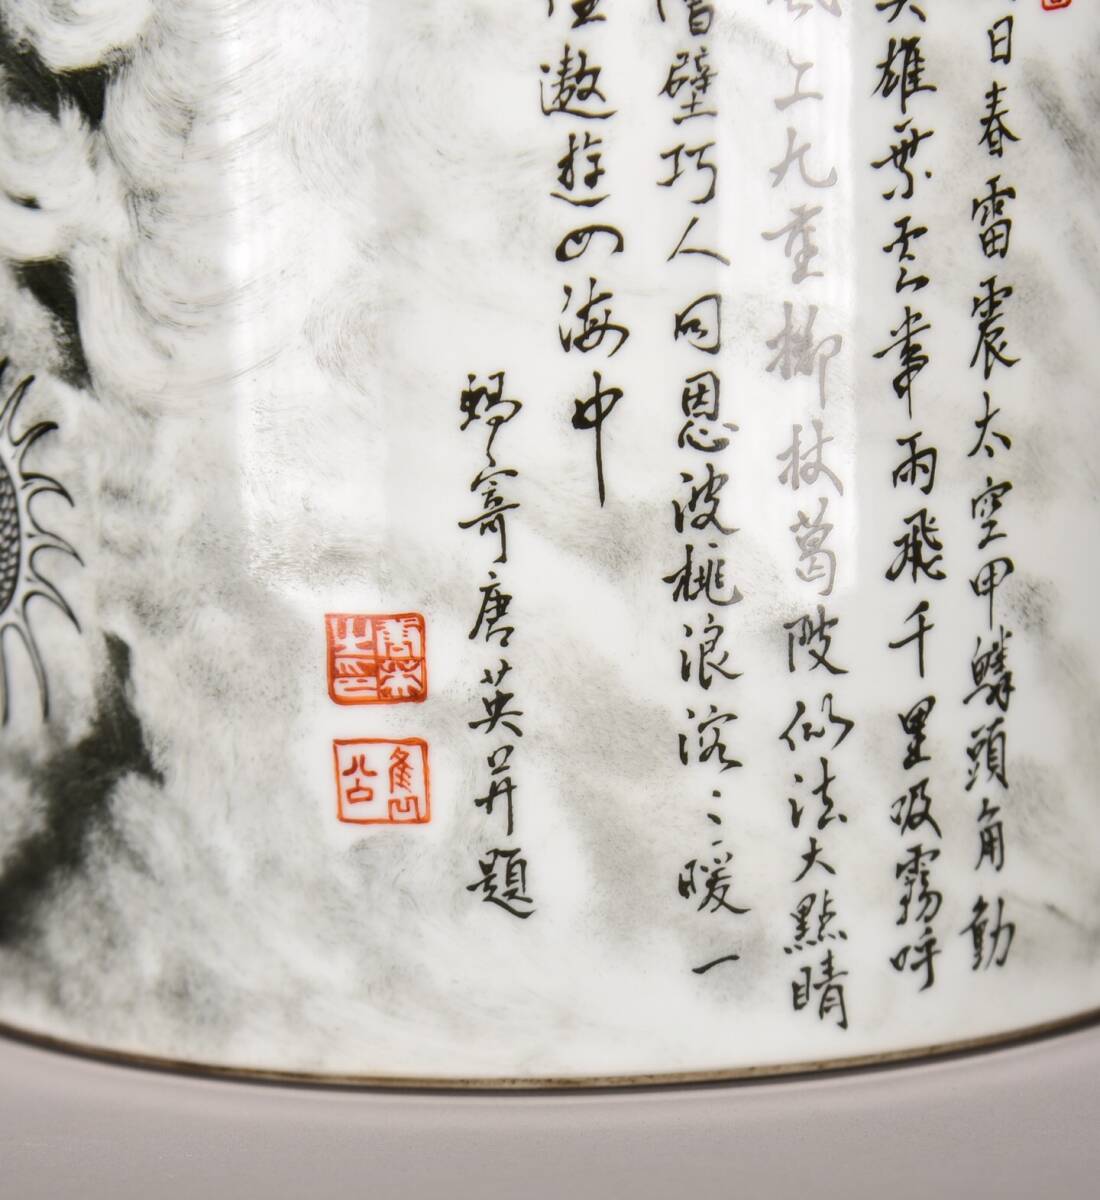 日春雷震太空甲鱗頭角動
英雄乘雲常雨飛千里吸霧呼
風上九重擲杖葛陂似法大點睛
僧壁巧人同恩波桃浪溶〻暖一
遨遊四海中
蝸寄唐英并題